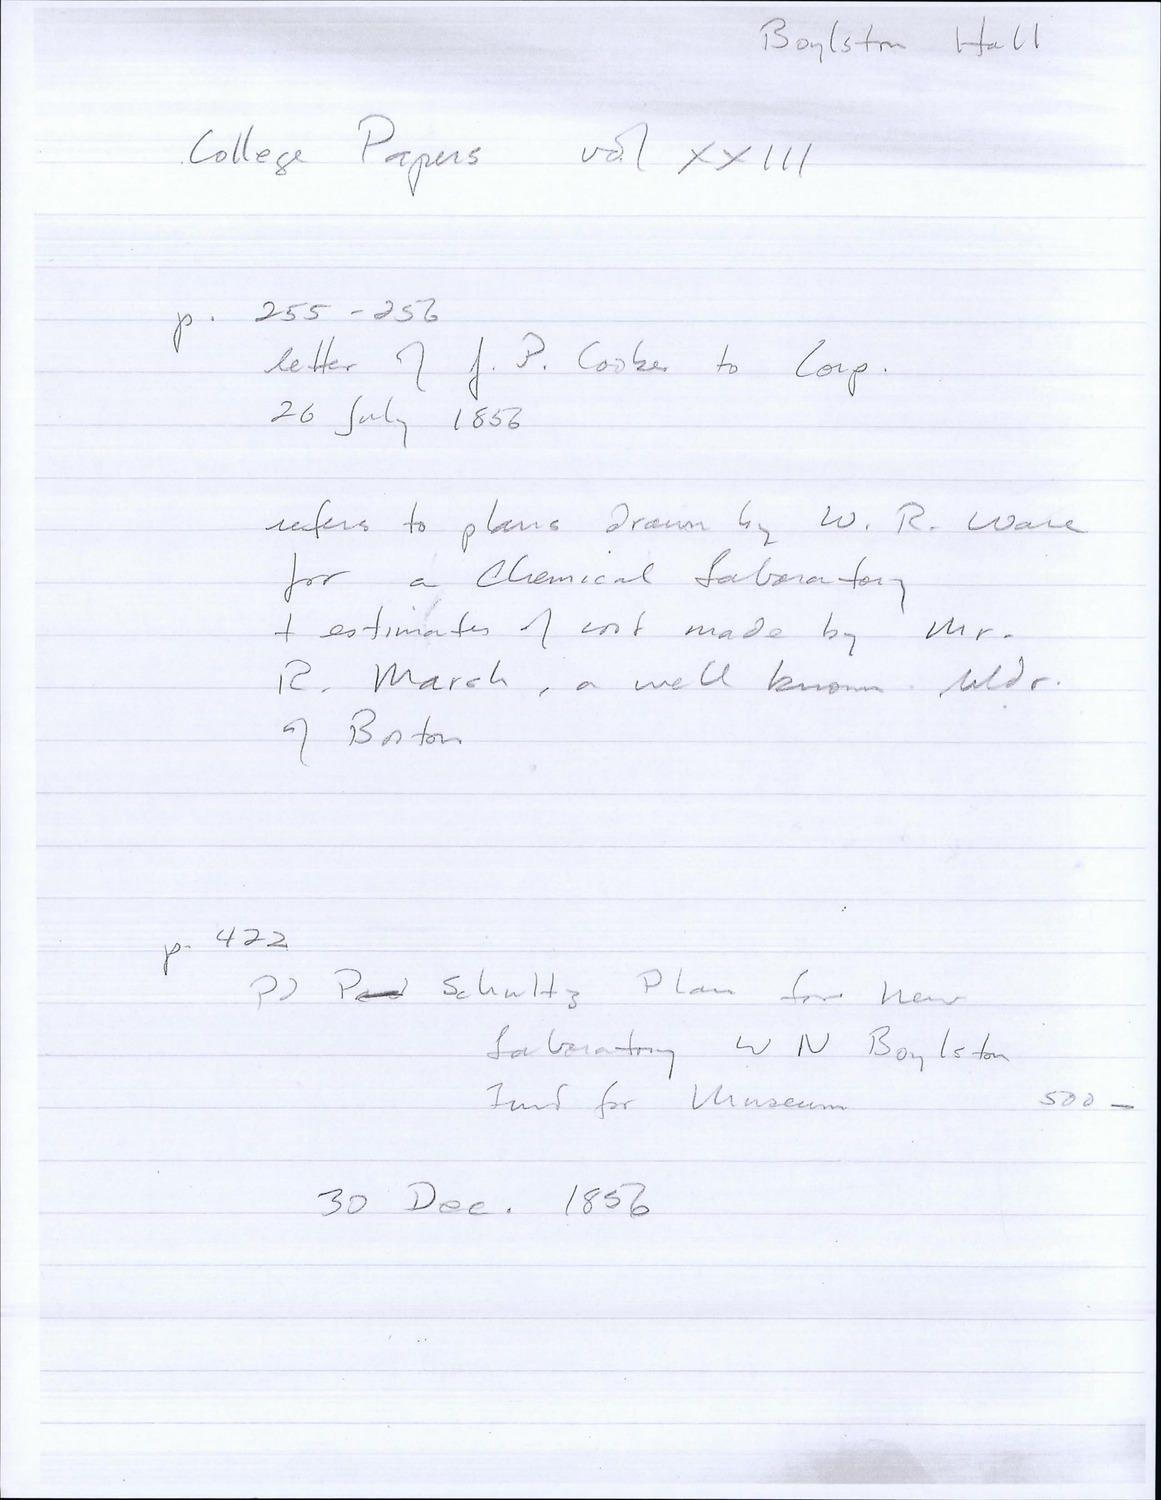 Boylston Hall
College Papers vol XXIII
p. 255-256
letter of J. P. Cooke to Corp.
26 July 1856
refers to plans drawn by W. R. Ware
for a Chemical Laboratory
+ estimates of cost made by Mr.
R. Marsh, a well known bldr.
of Boston
p. 422
PD Schultz Plan for New
Laboratory W N Boylston
Fund for Museum 500 –
30 Dec. 1856